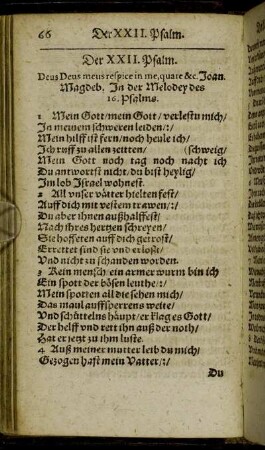 66 Der XXII. Psalm.
Der XXII. Psalm.
Deus Deus meus respice in me, quare &c. Joan.
Magdeb. In der Melodey des
16. Psalms.
1 Mein Gott/mein Gott/ verlestu mich/
In meinem schweren leiden/:/
Mein hilff ist fern/noch heule ich/
Ich ruff zu allen zeitten/ (schweig/
Mein Gott noch tag noch nacht ich
Du antwortst nicht/du bist heylig/
Im lob Israel wohnest.
2 All vnser vätter hielten fest/
Auff dich mit vestem trawen/:/
Du aber ihnen außhalffest/
Nach ihres hertzen schreyen/
Sie hofften auff dich getrost/
Errettet sind sie vnd erlost/
Vnd nicht zu schanden worden.
3 Kein mensch/ein armer wurm bin ich
Ein spott der bösen leuthe/:/
Mein spotten all die sehen mich/
Das maul auffsperrens weite/
Vnd schüttelns häupt/er klag es Gott/
Der helff vnd rett ihn auß der noth/
Hat er jetzt zu ihm luste.
4 Auß meiner mutter leib du mich/
Gezogen hast mein Vatter/:/
Du